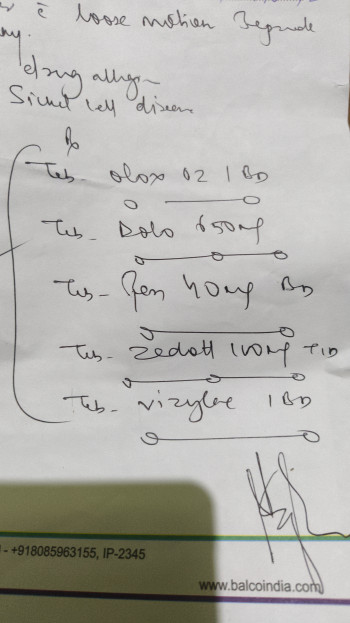 c̄ loose motion
drug allergy
Sickel cell disease
Rx
Tab- olox oz 1 BD
Tab- Dolo 650mg
Tab- Pan 40mg BD
Tab- Zedott 100mg TID
Tab- vizylac 1 BD
- +918085963155, IP-2345
www.balcoindia.com